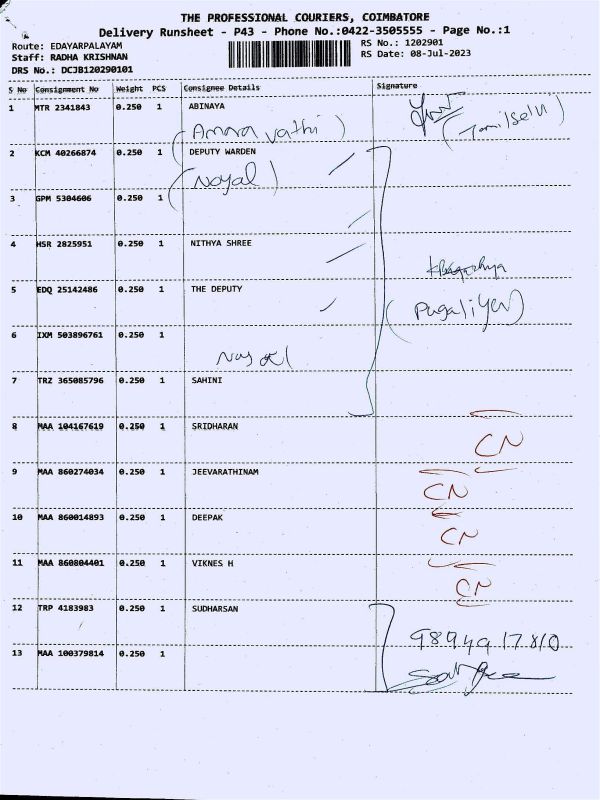 THE PROFESSIONAL COURIERS, COIMBATORE
Delivery Runsheet - P43 - Phone No.:0422-3505555 - Page No.:1
Route: EDAYARPALAYAM RS No.: 1202901
Staff: RADHA KRISHNAN RS Date: 08-Jul-2023
DRS No.: DCJB120290101
S No Consignment No Weight PCS Consignee Details Signature
1 MTR 2341843 0.250 1 ABINAYA
(Amaravathi) (Tamilselvi)
2 KCM 40266874 0.250 1 DEPUTY WARDEN
(Noyal)
3 GPM 5304606 0.250 1
4 HSR 2825951 0.250 1 NITHYA SHREE
5 EDQ 25142486 0.250 1 THE DEPUTY
(Pugaliyen)
6 IXM 503896761 0.250 1
7 TRZ 365085796 0.250 1 SAHINI
8 MAA 104167619 0.250 1 SRIDHARAN
CN
9 MAA 860274034 0.250 1 JEEVARATHINAM
CN
10 MAA 860014893 0.250 1 DEEPAK
CN
11 MAA 860804401 0.250 1 VIKNES H
CN
12 TRP 4183983 0.250 1 SUDHARSAN
9894917810
13 MAA 100379814 0.250 1